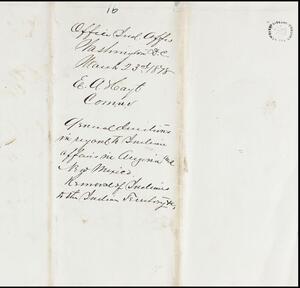 10
Office Ind Affrs
Washington D.C.
March 23rd 1878
E. A. Hayt
Comnr
General
in regard to Indian
affairs in Arizona and
New Mexico.
Removal of Indians
to the Indian Territory &c,